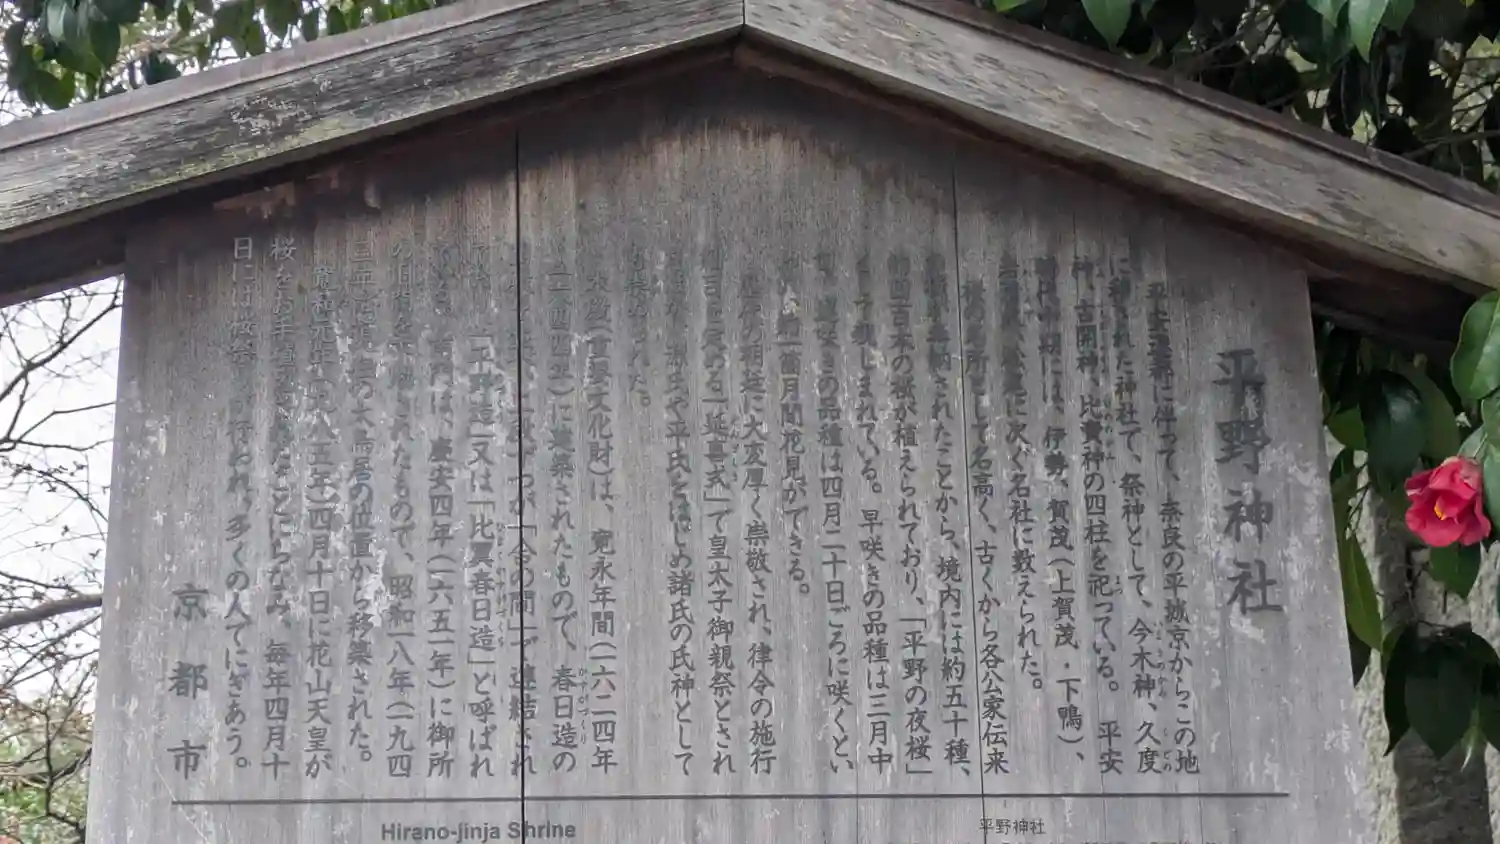 平野神社
平安遷都に伴って、奈良の平城京からこの地
に移された神社で、祭神として、今木神、久度
神、古開神、比賣神の四柱を祀っている。平安
時代中期には、伊勢、賀茂(上賀茂・下鴨)、
に次ぐ名社に数えられた。
桜の名所として名高く、古くから各公家伝来
されたことから、境内には約五十種、
約四百本の桜が植えられており、「平野の夜桜」
として親しまれている。早咲きの品種は三月中
遅咲きの品種は四月二十日ごろに咲くとい
約一箇月間花見ができる。
の朝廷に大変厚く崇敬され、律令の施行
細則を定める「延喜式」で皇太子御親祭とされ
源氏や平氏をはじめ諸氏の氏神として
も崇められた。
本殿(重要文化財)は、寛永年間(一六二四年
~一六四四年)に建築されたもので、春日造の
「合の間」で連結され
「平野造」又は「比翼春日造」と呼ばれ
南門は、慶安四年(一六五一年)に御所
の旧門を下賜されたもので、昭和一八年(一九四
三年)に の大鳥居の位置から移築された。
寛和元年(九八五年)四月十日に花山天皇が
桜をお手植えされたことにちなみ、毎年四月十
日には桜祭 が行われ、多くの人でにぎあう。
京都市
Hirano-jinja Shrine
平野神社